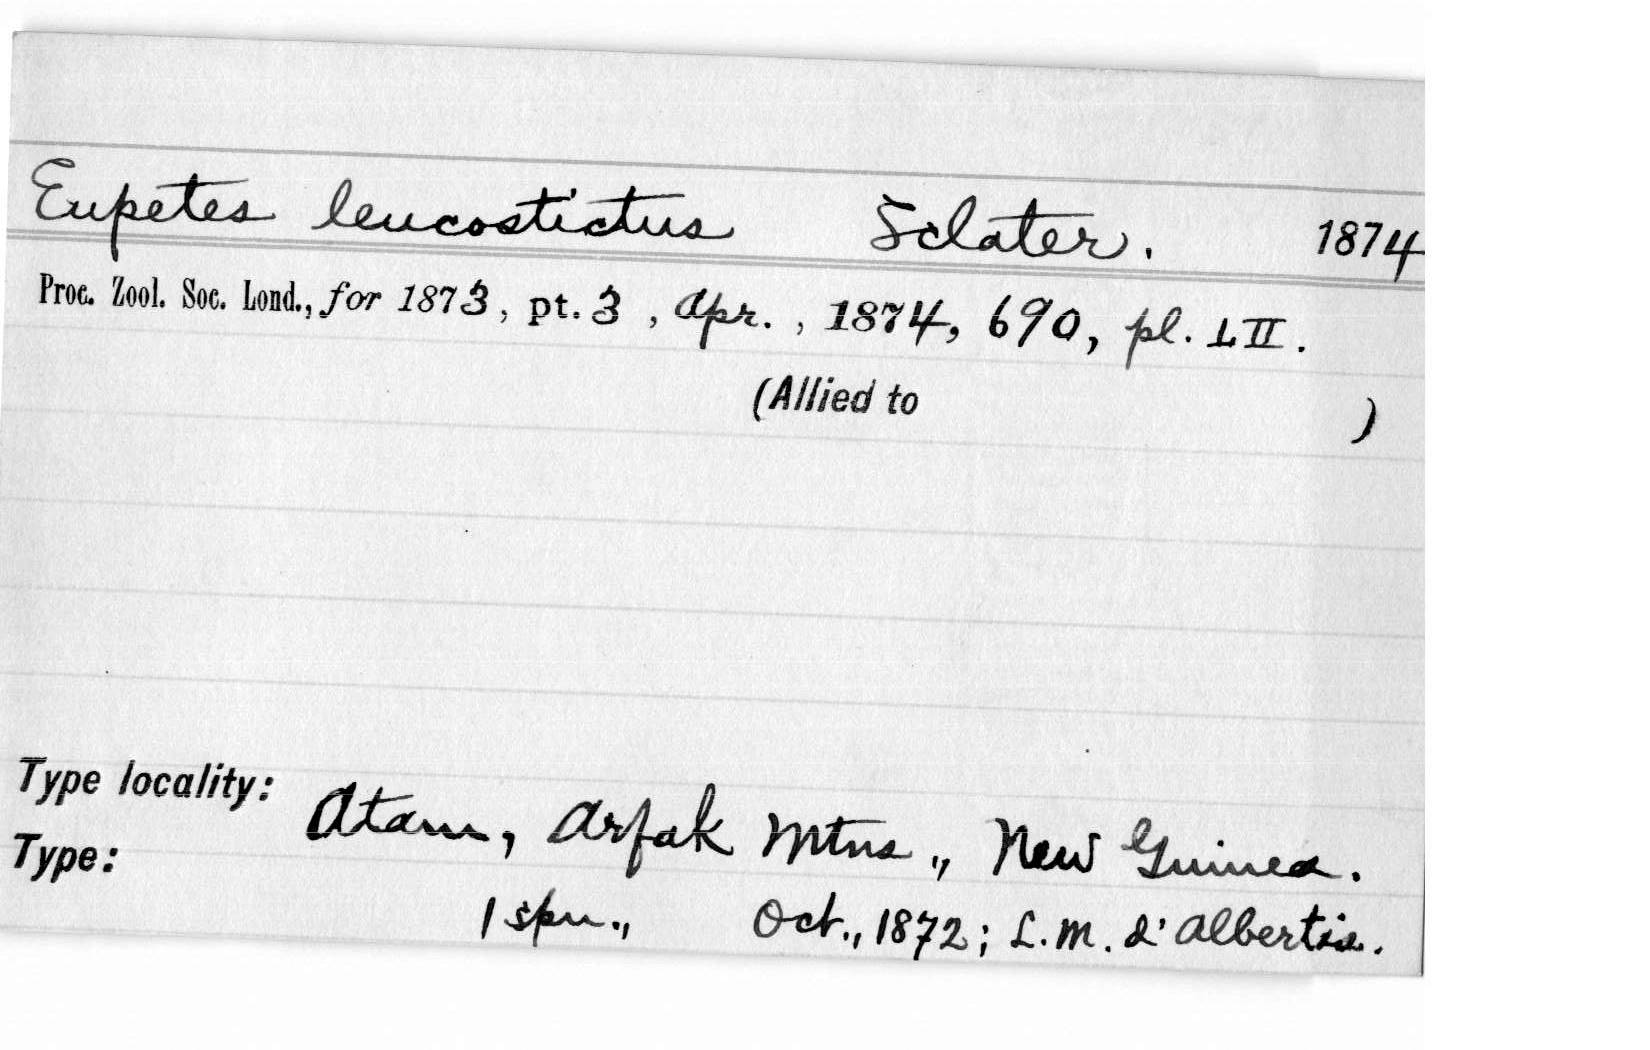 Eupetes leucostictus Sclater. 1874
Proc. Zool. Soc. Lond., for 1873, pt. 3, Apr., 1874, 690, pl. LII.
(Allied to )
Type locality: Atam, Arfak Mtns., New Guinea.
Type:
1 spn., Oct., 1872; L.M. d'Albertis.